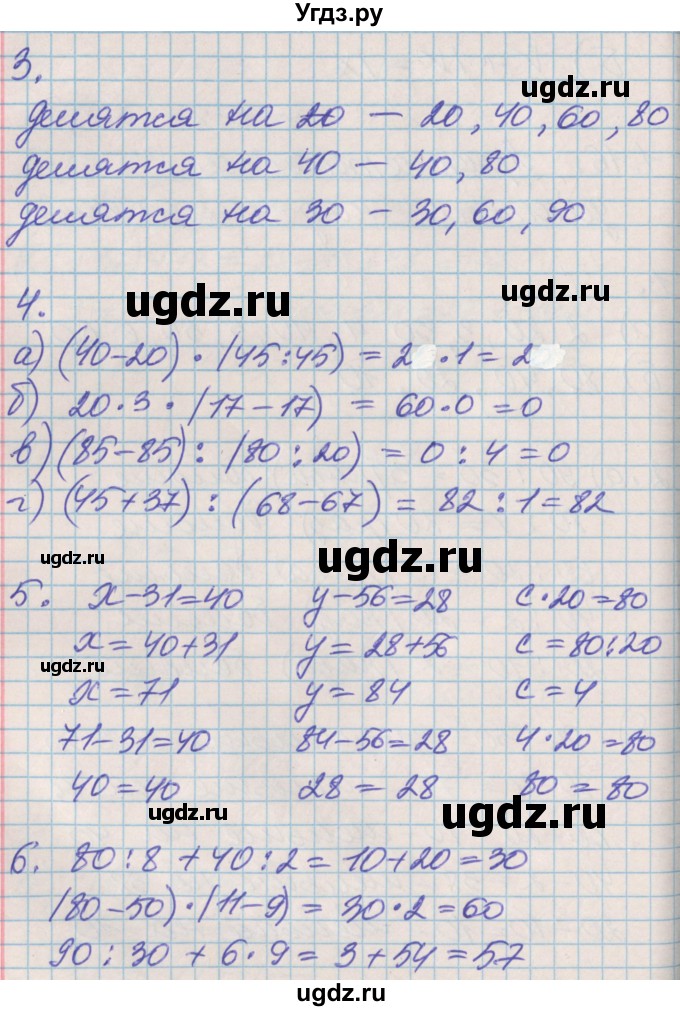 Угдз.ру
3.
ugdz.ru
делятся на 20 — 20, 40, 60, 80
делятся на 40 — 40, 80
делятся на 30 — 30, 60, 90
ugdz.ru
ugdz.ru
4.
а) (40-20) · (45:45) = 2 · 1 = 2
б) 20·3 · (17-17) = 60·0 = 0
в) (85-85) : (80:20) = 0 : 4 = 0
г) (45+37) : (68-67) = 82 : 1 = 82
ugdz.ru
ugdz.ru
5. x-31=40 y-56=28 c·20=80
x=40+31 y=28+56 c=80:20
ugdz.ru
x=71 y=84 c=4
71-31=40 84-56=28 4·20=80
40=40 28=28 80=80
ugdz.ru
ugdz.ru
6. 80:8+40:2=10+20=30
(80-50)·(11-9)=30·2=60
90:30+6·9=3+54=57
ugdz.ru